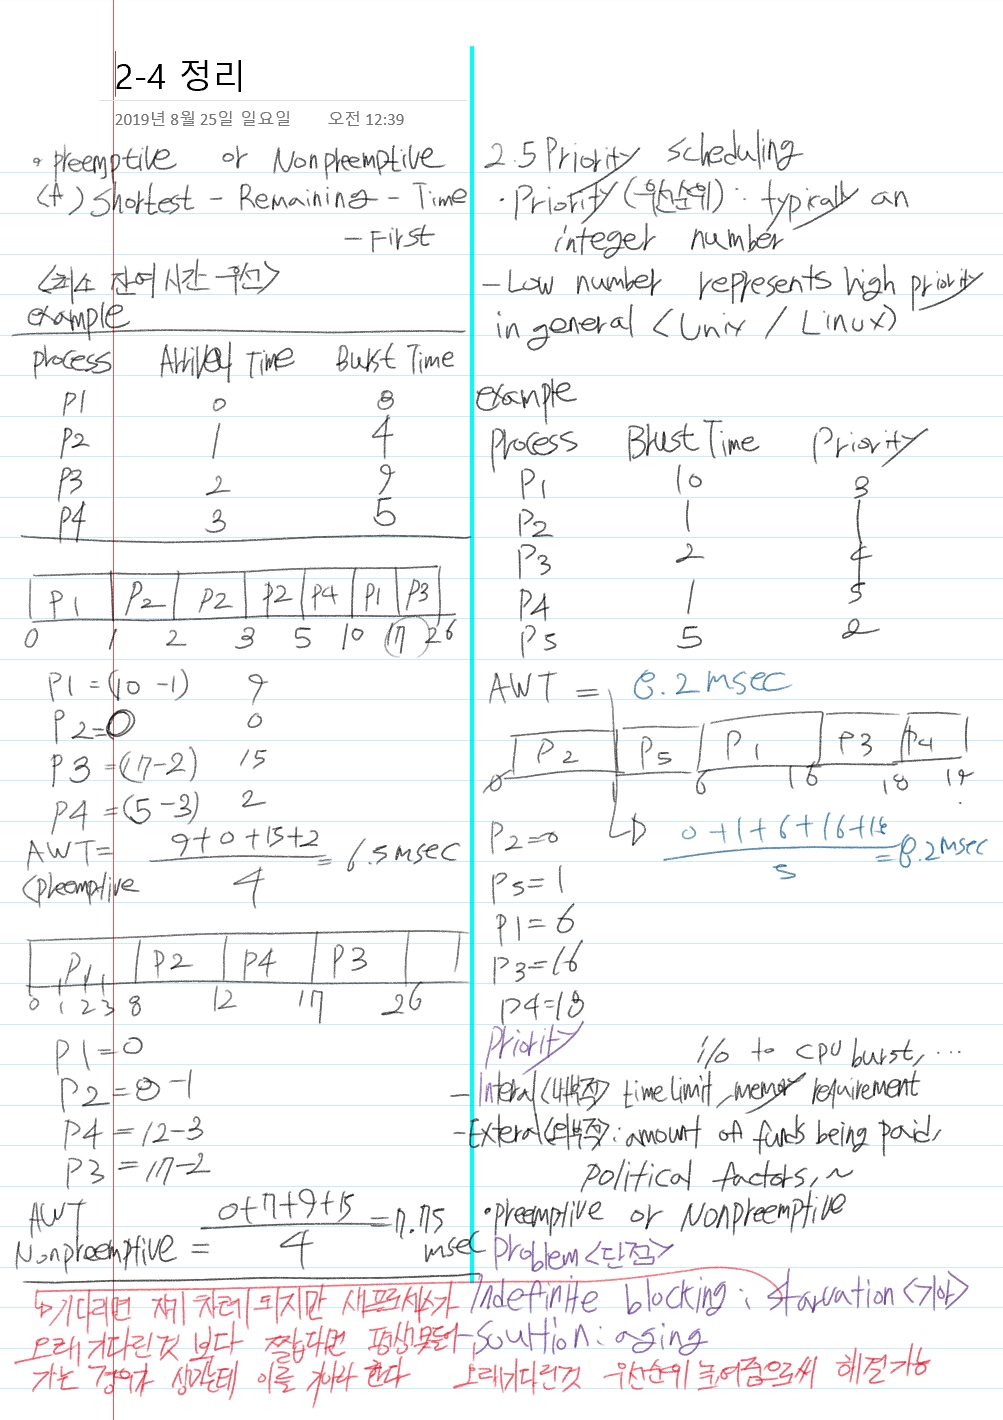 2-4 정리
2019년 8월 25일 일요일 오전 12:39
• preemptive or Nonpreemptive
(+) Shortest - Remaining - Time
- First
<최소 잔여 시간 우선>
example
process Arrival Time Burst Time
P1 0 8
P2 1 4
P3 2 9
P4 3 5
P1 P2 P2 P2 P4 P1 P3
0 1 2 3 5 10 17 26
P1 = (10 -1) 9
P2=0 0
P3 =(17-2) 15
P4 =(5-3) 2
AWT= 9+0+15+2
= 6.5msec
(preemptive 4
P1 P2 P4 P3
0 1 2 3 8 12 17 26
P1=0
P2=8-1
P4 =12-3
P3 =17-2
AWT 0+7+9+15
Nonpreemptive = 4 =7.75
msec
2.5 Priority scheduling
· Priority(우선순위) : typically an
integer number
- Low number represents high priority
in general (Unix / Linux)
example
process Brust Time Priority
P1 10 3
P2 1 1
P3 2 4
P4 1 5
P5 5 2
AWT = 8.2msec
P2 P5 P1 P3 P4
0 1 6 16 18 19
P2=0
0+1+6+16+18
5 =8.2msec
P5=1
P1=6
P3=16
P4=18
Priority
i/o to CPU burst, ...
- Interal(내부적) time limit, memory requirement
- Exteral(외부적) : amount of funds being paid,
political factors, ~
• preemptive or Nonpreemptive
problem<단점>
Indefinite blocking : starvation <기아>
- soultion : aging
↳기다리면 자기 차례 되지만 새프로세스가
오래 기다린것 보다 짧다면 평생못들어
가는 경우가 생기는데 이를 기아라 한다
오래기다린것 우선순위 높여줌으로써 해결가능